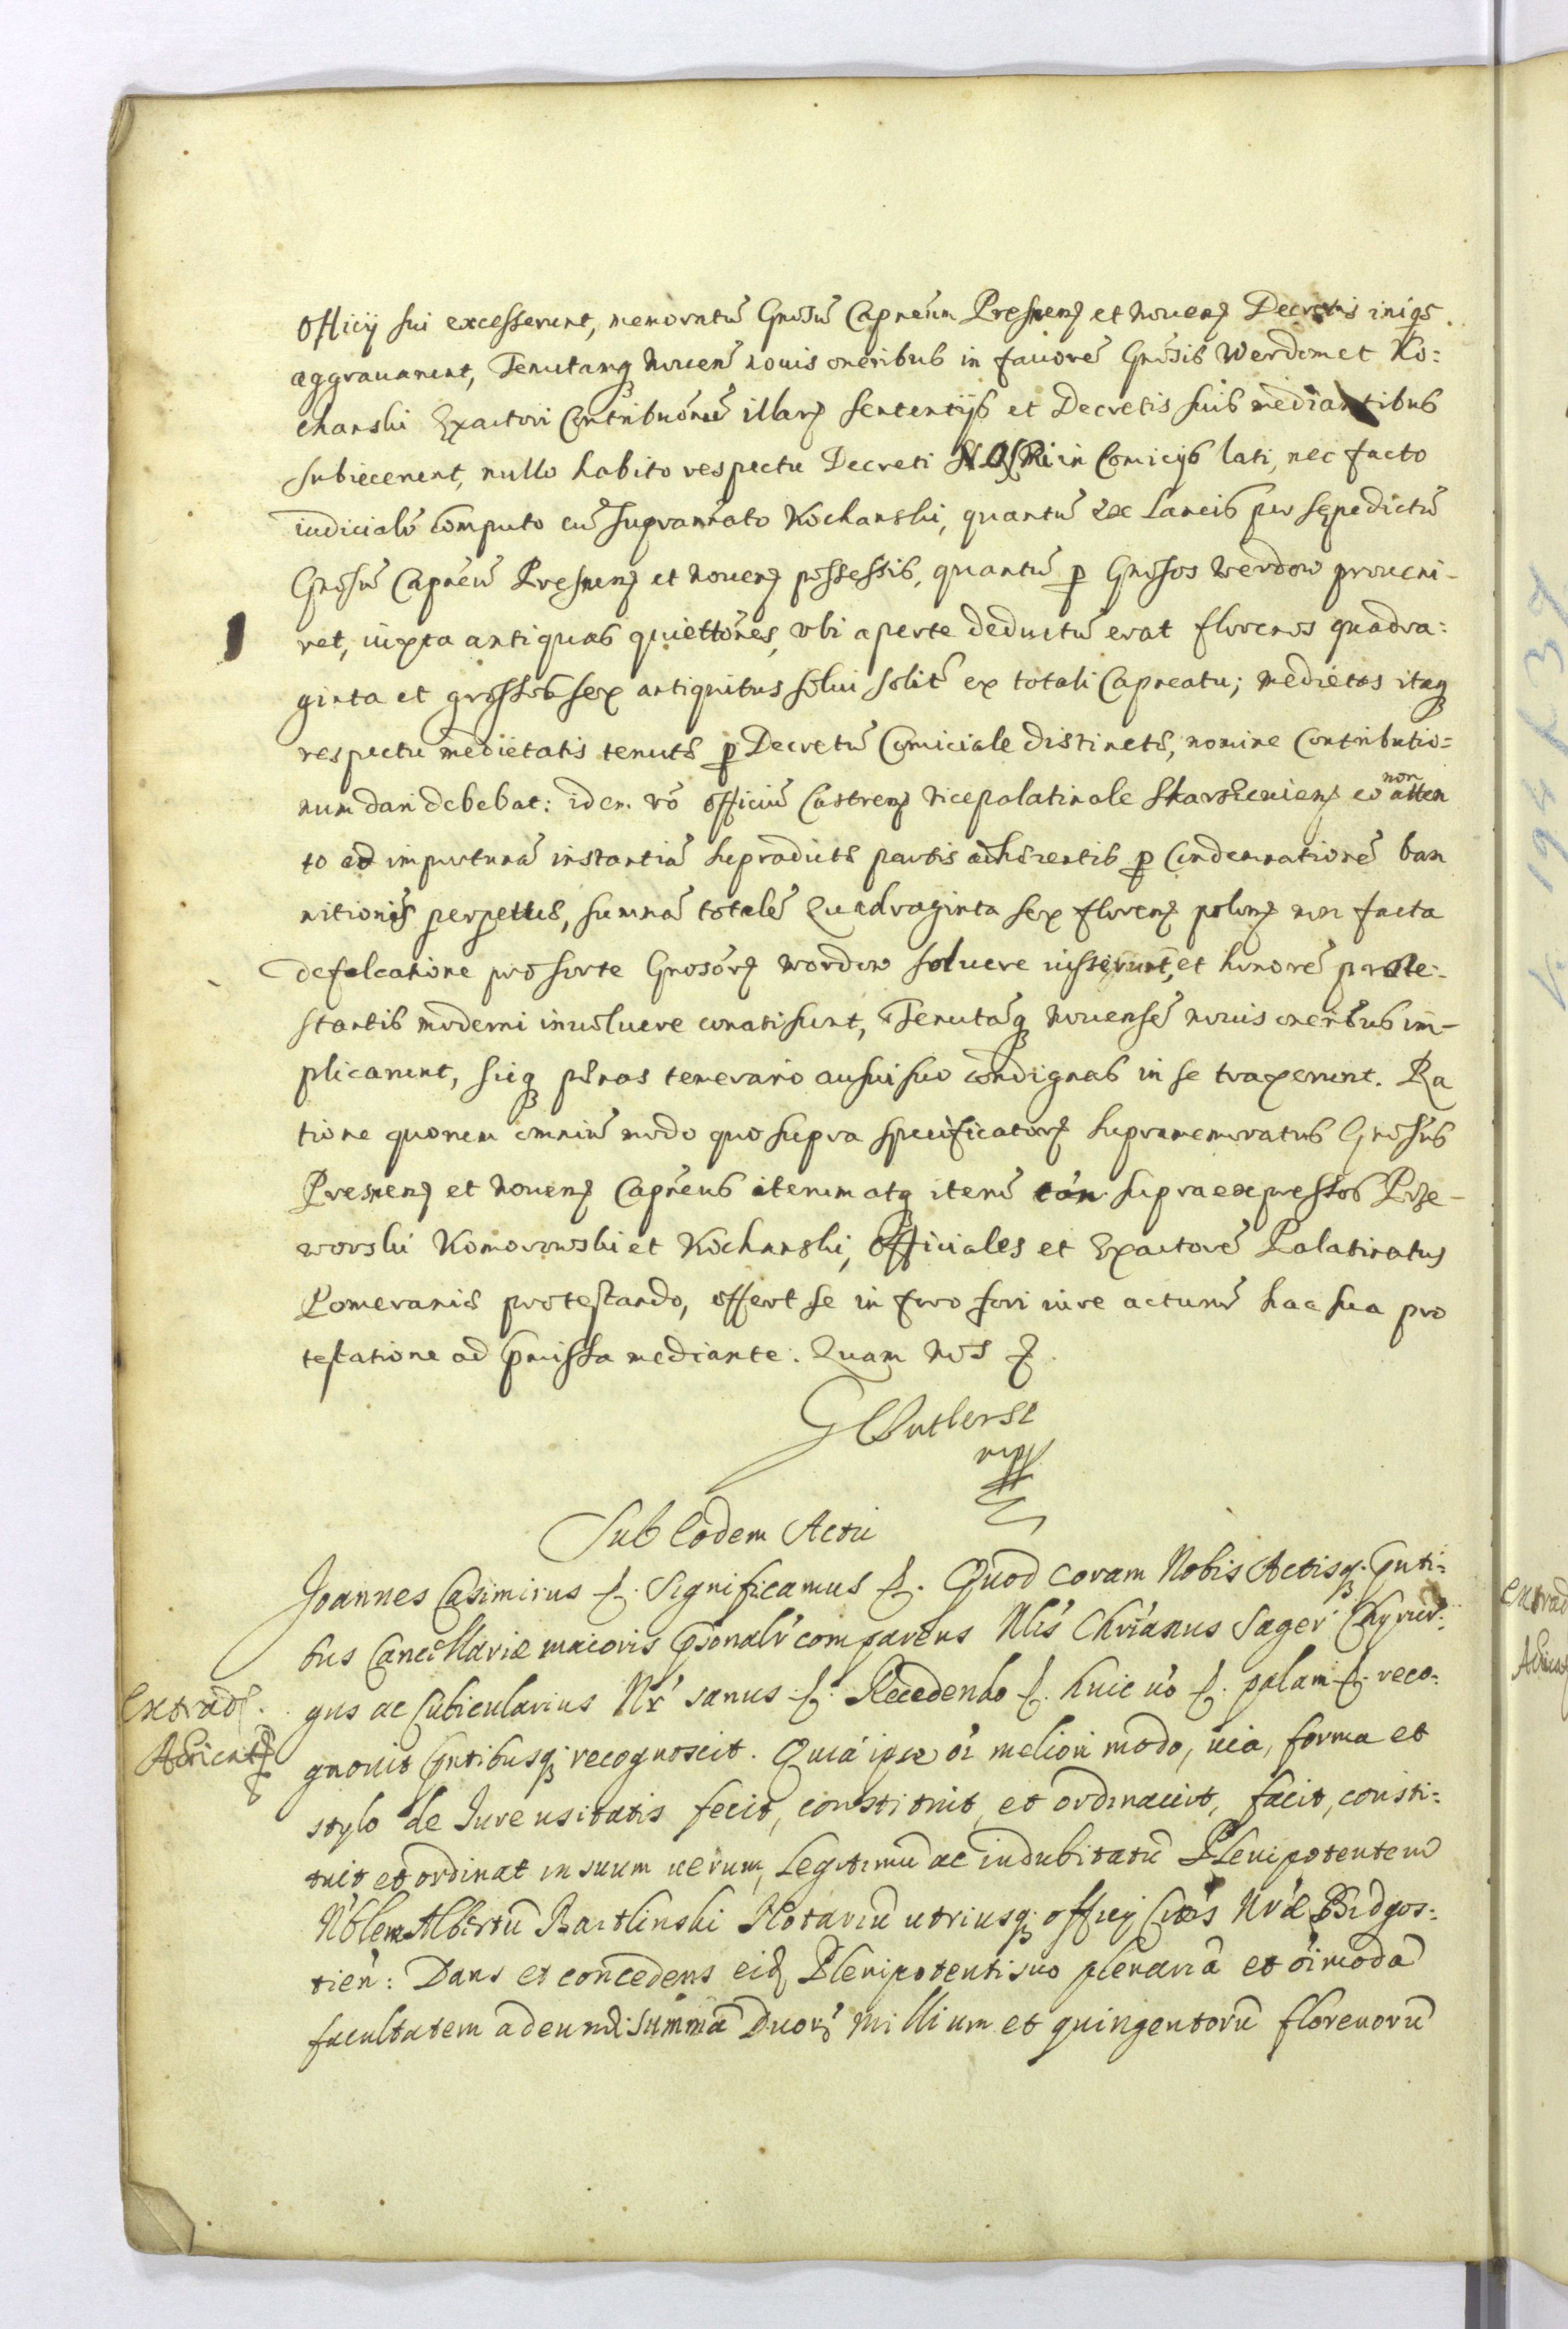 Officij sui excesserunt, memoratũ Gnosũ Capneum Presnenȝ et Nouenȝ Decretis iniqs
aggrauarunt, Tenutamqȝ Nouenẽ nouis oneribus in fauorẽ Gnosis Werdom et Ko:
chanski Exactori Contributionũ illarȝ sententijs et Decretis suis mediantibus
subiecerunt, nullo habito respectu Decreti NOSRi in Comicijs lati, nec facto
iudiciali computo cũ suprannato Kochanski, quantũ ex Laneis per sępedictũ
Gnosũ Capneũ Presnenȝ et Nouenȝ possessis, quantũ p Gnosos Werdow proueni-
ret, iuxta antiquas quiettões, vbi aperte deductũ erat florenos quadra:
ginta et grossos sex antiquitus solui solitẽ ex totali Capneatu; medietas itaqȝ
respectu medietatis tenutę p Decretũ Comiciale distinctę, nomine Contributio=
num dari debebat: idem vo officiũ Castrenȝ Vicepalatinale Skarszewienȝ eo non atten
to ad importunã instantiã supradictę partis adhęrentis p Condemnationẽ ban
nitionis perpetuę, summã totalẽ Quadraginta sex florenȝ polonȝ non facta
defalcatione pro sorte Gnosorȝ Werdow soluere iusserunt, et honorẽ prote-
stantis moderni inuoluere conati sunt, Tenutãqȝ Nouensẽ nouis oneribus im-
plicarunt, sicqȝ pęnas temerario ausui suo condignas in se traxerunt. Ra
tione quorum omniũ modo quo supra specificatorȝ supramemoratus Gnosus
Presnenȝ et Nouenȝ Capneus iterum atqȝ iterũ cón supraexpressos Prze-
worski Komorowski et Kochanski, Officiales et Exactorẽ Palatinatus
Pomeranię protestando, offert se in foro fori iure acturũ hac sua pro
testatione ad pmissa mediante. Quam Nos ȝ.
G Butler SC
mpp
Sub Eodem Actu
Joannes Casimirus ſ. Significamus ſ. Quod coram Nobis Actisqȝ pnti:
bus Cancellariæ maioris psonalr comparens Nlis Chrianus Sager Chyrur:
Extrad.
gus ac Cubicularius Nr sanus ſ. Recedendo ſ. huic vo ſ. palam ſ. reco:
gnouit pntibusqȝ recognoscit. Quia ipse oi meliori modo, via, forma et
stylo de Jure usitatis fecit, constituit, et ordinauit, facit, consti:
tuit et ordinat in suum verum, Legitimũ ac indubitatũ Plenipotentem
Nblem Albertũ Bartlinski Notariũ utriusqȝ officij Ciuis Nræ Bidgos:
tien: Dans et concedens eidȝ Plenipotenti suo plenariã et oimodã
facultatem adeundi summã Duorȝ Millium et quingentorũ florenorũ
Extrad